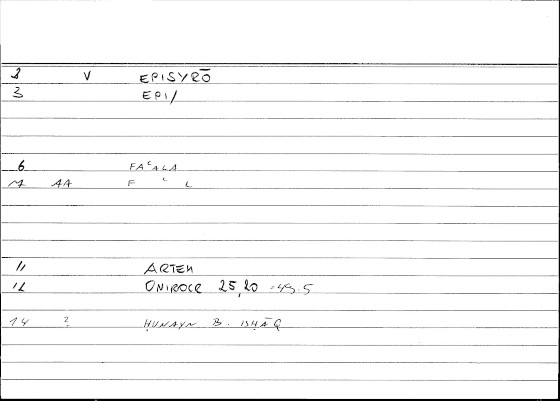 8 V EPISYRŌ
3 EPI/
6 FAᶜALA
AA F ᶜ L
11 ARTEM
12 ONIROCR 25,20 = 45.5
14 ? ḤUNAYN B. ISḤĀQ